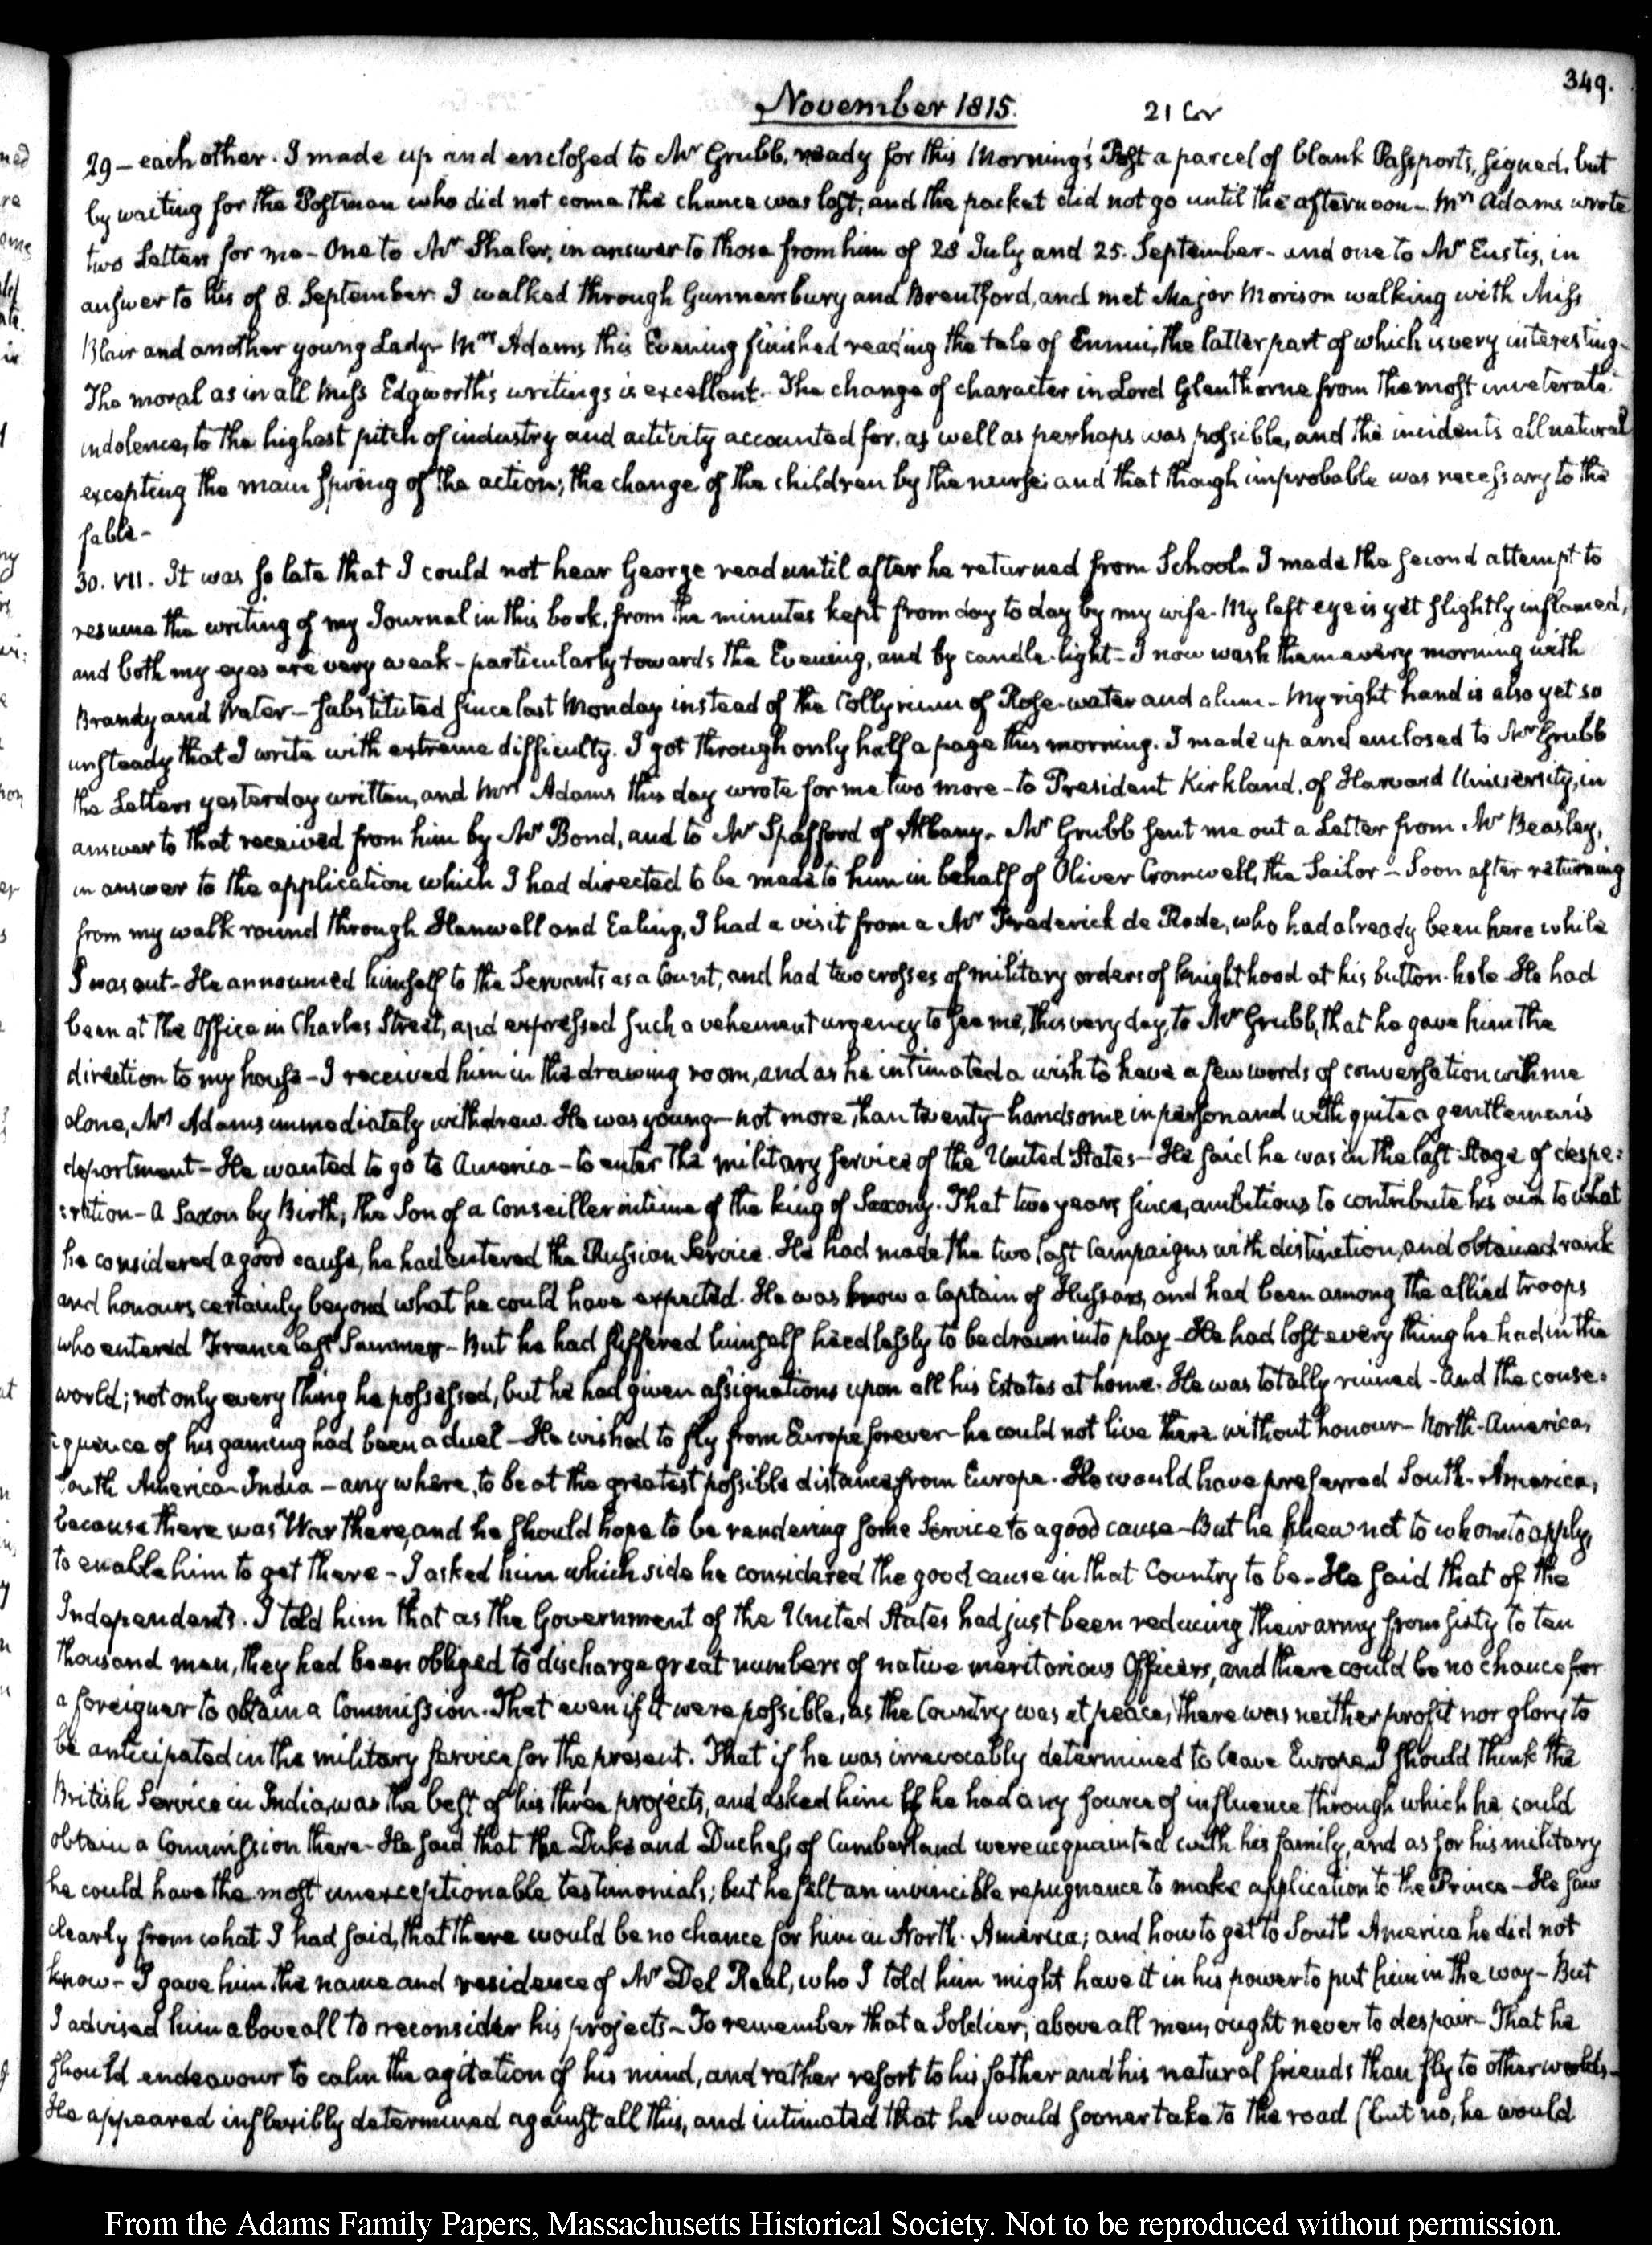 349.
November 1815.
29 — each other. I made up and enclosed to Mr Grubb, ready for this Morning's Post a parcel of blank Passports, signed, but
by waiting for the Postman who did not come the chance was lost, and the packet did not go until the afternoon — Mrs Adams wrote
two Letters for me — One to Mr Shaler, in answer to those from him of 28 July and 25. September — and one to Mr Eustis, in
answer to his of 8. September. I walked through Gunnersbury and Brentford, and met Major Morison walking with Miss
Blair and another young Lady — Mrs Adams this Evening finished reading the tale of Ennui, the latter part of which is very interesting —
The moral as in all Miss Edgworth's writings is excellent. The change of character in Lord Glenthorne from the most inveterate
indolence, to the highest pitch of industry and activity accounted for, as well as perhaps was possible, and the incidents all natural
excepting the main spring of the action; the change of the children by the nurse: and that though improbable was necessary to the
fable —
30. VII. It was so late that I could not hear George read until after he returned from School — I made the second attempt to
resume the writing of my Journal in this book, from the minutes kept from day to day by my wife. My left eye is yet slightly inflamed,
and both my eyes are very weak — particularly towards the Evening, and by candle-light — I now wash them every morning with
Brandy and Water — substituted since last Monday instead of the Collyrium of Rose-water and alum — My right hand is also yet so
unsteady that I write with extreme difficulty. I got through only half a page this morning. I made up and enclosed to Mr Grubb
the Letters yesterday written, and Mrs Adams this day wrote for me two more — to President Kirkland, of Harvard University, in
answer to that received from him by Mr Bond, and to Mr Spafford of Albany. Mr Grubb sent me out a Letter from Mr Beasley,
in answer to the application which I had directed to be made to him in behalf of Oliver Cromwell, the Sailor — Soon after returning
from my walk round through Hanwell and Ealing, I had a visit from a Mr Frederick de Rode, who had already been here while
I was out — He announced himself to the Servants as a Count, and had two crosses of military orders of knighthood at his button-hole. He had
been at the Office in Charles Street, and expressed such a vehement urgency to see me, this very day, to Mr Grubb, that he gave him the
direction to my house — I received him in the drawing room, and as he intimated a wish to have a few words of conversation with me
alone, Mrs Adams immediately withdrew. He was young — not more than twenty — handsome in person and with quite a gentleman's
deportment — He wanted to go to America — to enter the military service of the United States — He said he was in the last Stage of despe:
:ration — a Saxon by Birth, the Son of a Conseiller intime of the king of Saxony. That two years since, ambitious to contribute his aid to what
he considered a good cause, he had entered the Russian Service. He had made the two last Campaigns with distinction, and obtained rank
and honours certainly beyond what he could have expected. He was now a Captain of Hussars, and had been among the allied troops
who entered France last Summer — But he had suffered himself heedlessly to be drawn into play — He had lost every thing he had in the
world; not only every thing he possessed, but he had given assignations upon all his Estates at home. He was totally ruined — and the conse:
:quence of his gaming had been a duel — He wished to fly from Europe forever — he could not live there without honour — North-America,
South America — India — any where, to be at the greatest possible distance from Europe. He would have preferred South-America,
because there was War there, and he should hope to be rendering some Service to a good cause — But he knew not to whom to apply,
to enable him to get there — I asked him which side he considered the good cause in that Country to be — He said that of the
Independents. I told him that as the Government of the United States had just been reducing their army from sixty to ten
thousand men, they had been obliged to discharge great numbers of native meritorious Officers, and there could be no chance for
a foreigner to obtain a Commission. That even if it were possible, as the Country was at peace, there was neither profit nor glory to
be anticipated in the military service for the present. That if he was irrevocably determined to leave Europe, I should think the
British Service in India, was the best of his three projects, and asked him if he had any source of influence through which he could
obtain a Commission there — He said that the Duke and Duchess of Cumberland were acquainted with his family, and as for his military
he could have the most unexceptionable testimonials; but he felt an invincible repugnance to make application to the Prince — He saw
clearly from what I had said, that there would be no chance for him in North-America; and how to get to South America he did not
know — I gave him the name and residence of Mr Del Real, who I told him might have it in his power to put him in the way — But
I advised him above all to reconsider his projects — To remember that a Soldier, above all men, ought never to despair — That he
should endeavour to calm the agitation of his mind, and rather resort to his father and his natural friends than fly to other worlds —
He appeared inflexibly determined against all this, and intimated that he would sooner take to the road (but no, he would
From the Adams Family Papers, Massachusetts Historical Society. Not to be reproduced without permission.